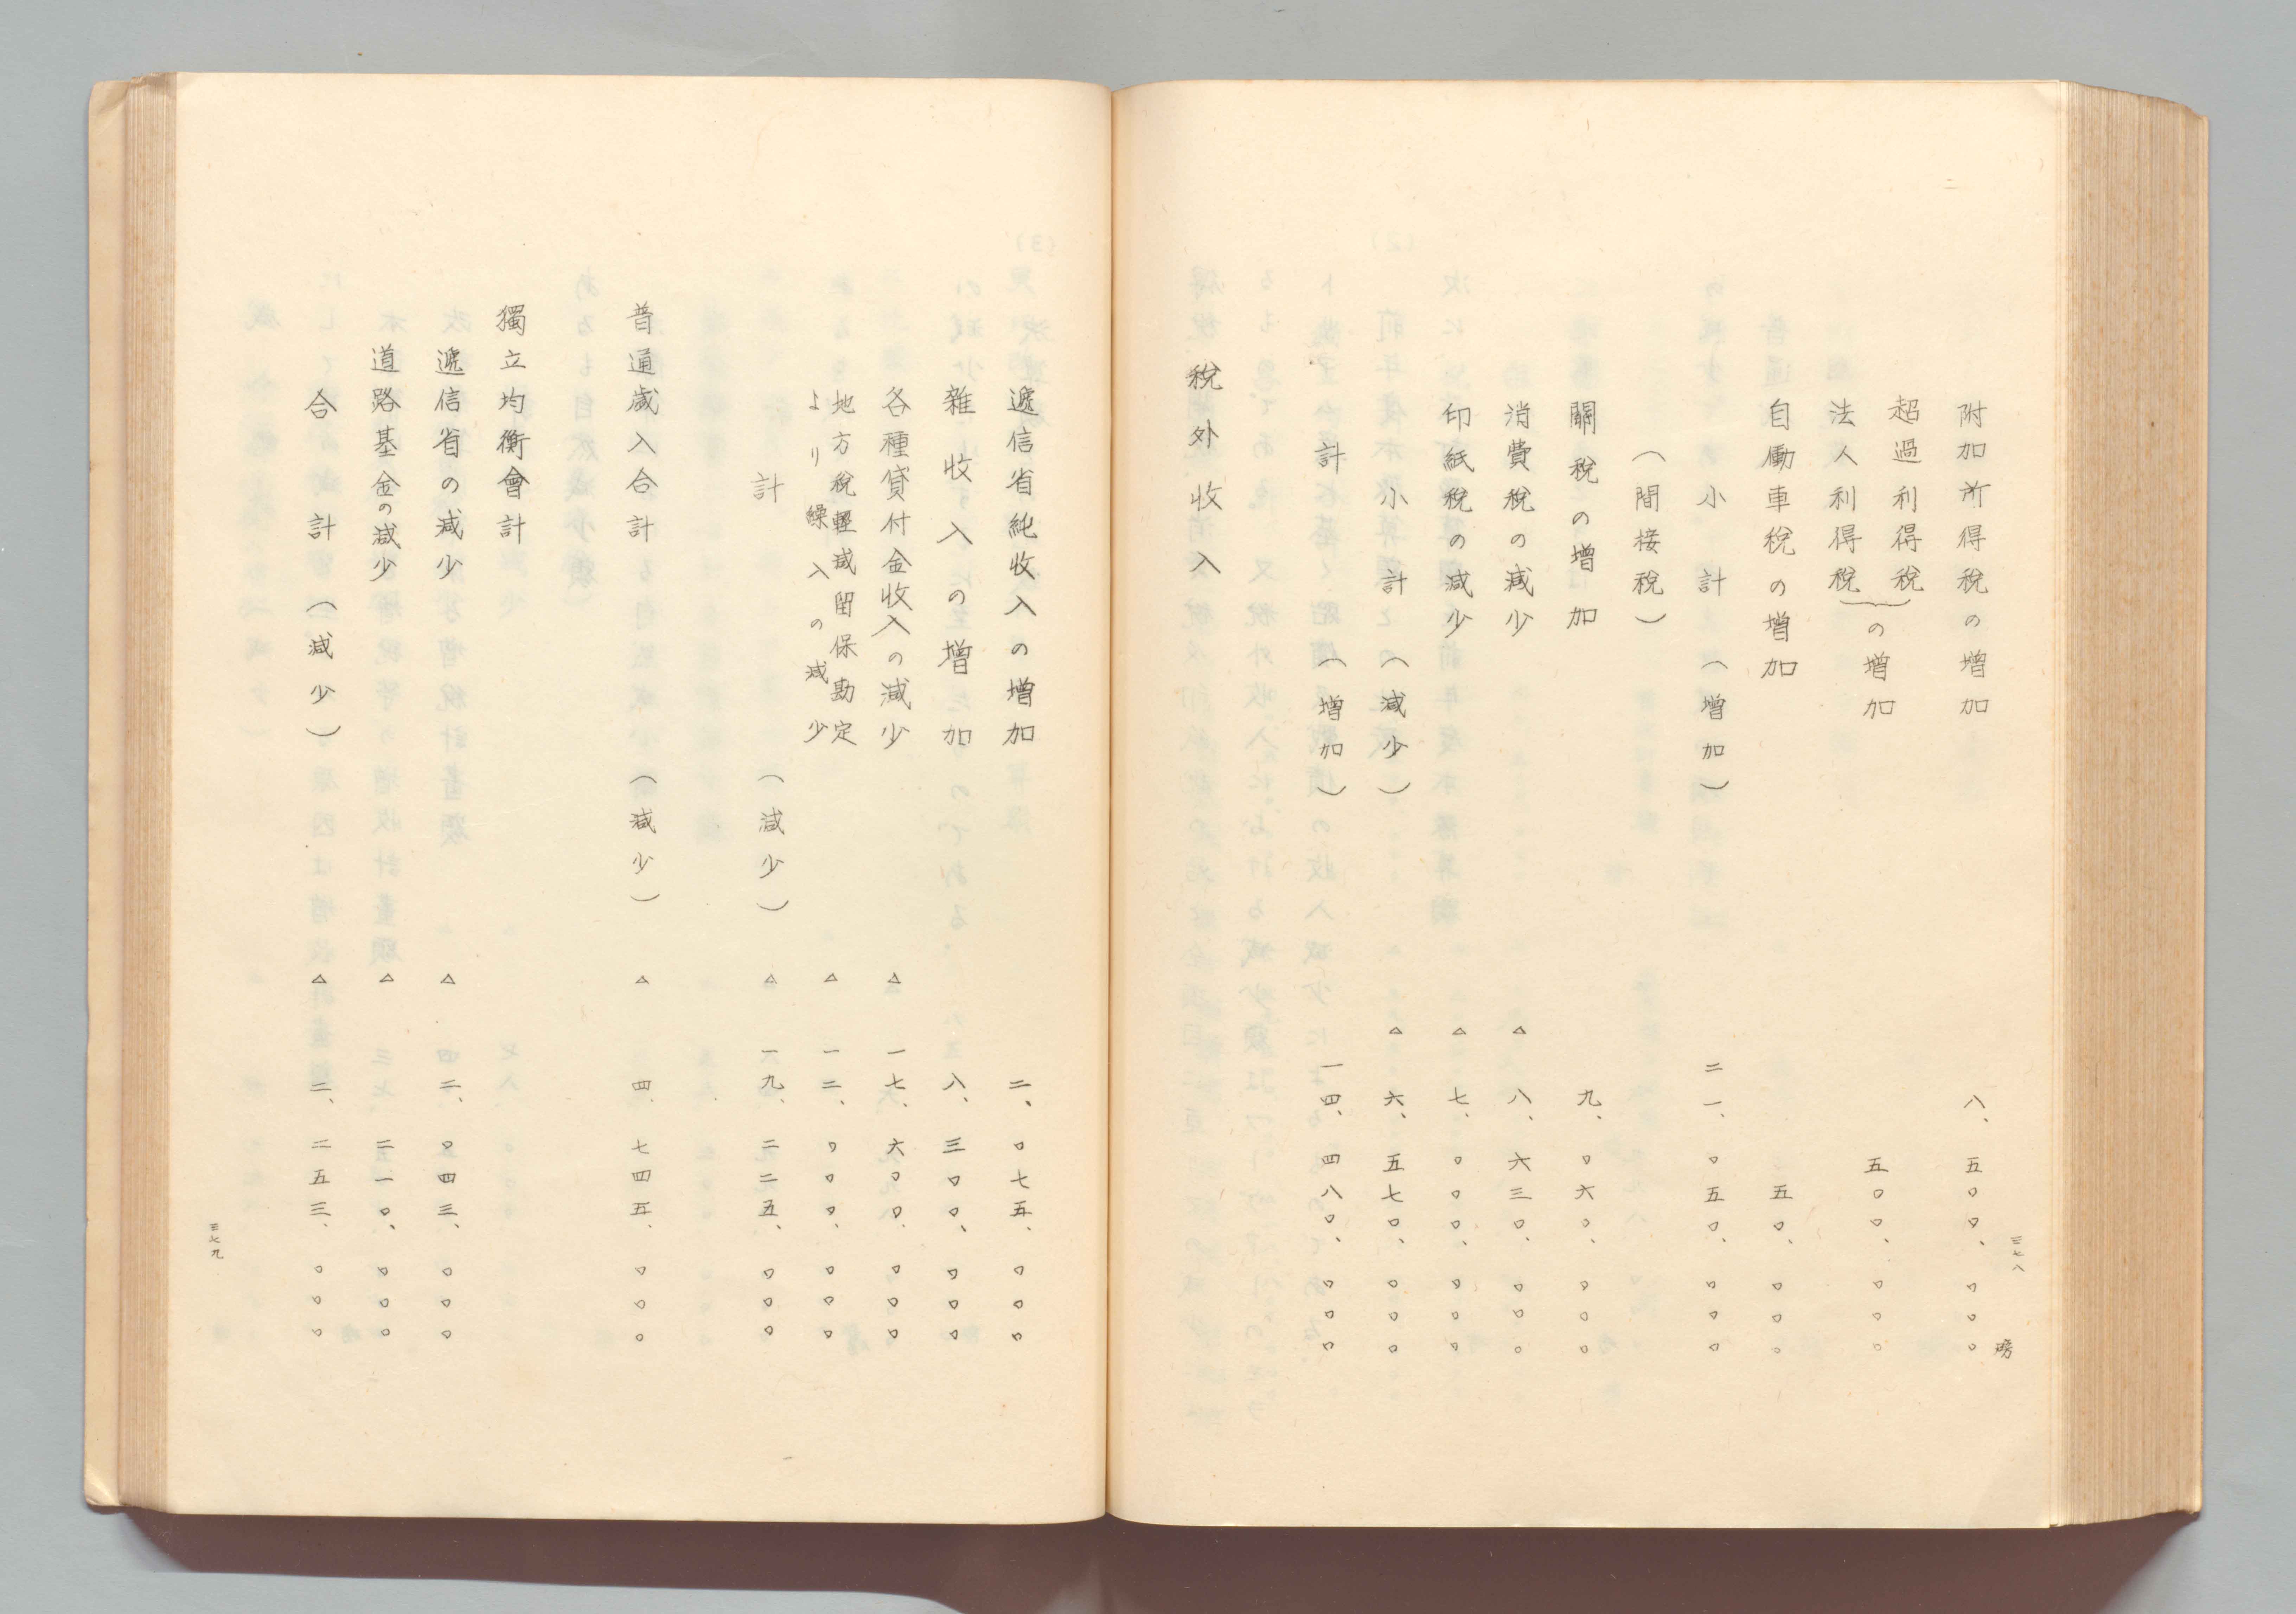 三七八
附加所得税の増加 八、五〇〇、〇〇〇磅
超過利得税
法人利得税}の増加 五〇〇、〇〇〇
自働車税の増加 五〇、〇〇〇
小計(増加) 二一、〇五〇、〇〇〇
(間接税)
關税の増加 九、〇六〇、〇〇〇
消費税の減少 △八、六三〇、〇〇〇
印紙税の減少 △七、〇〇〇、〇〇〇
小計(減少) △六、五七〇、〇〇〇
計(増加) 一四、四八〇、〇〇〇
税外收入
遞信省純收入の増加 二、〇七五、〇〇〇
雜收入の増加 八、三〇〇、〇〇〇
各種貸付金收入の減少 △一七、六〇〇、〇〇〇
地方税輕減留保勘定
より繰入の減少 △一二、〇〇〇、〇〇〇
計(減少) △一九、二二五、〇〇〇
普通歳入合計(減少) △四、七四五、〇〇〇
獨立均衡會計
遞信省の減少 △二、〇四三、〇〇〇
道路基金の減少 △二一〇、〇〇〇
合計(減少) △二、二五三、〇〇〇
三七九